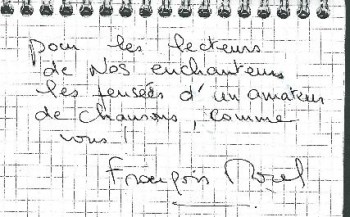 pour les lecteurs
de Nos enchanteurs
les pensées d'un amateur
de chansons, comme
vous !
François Morel